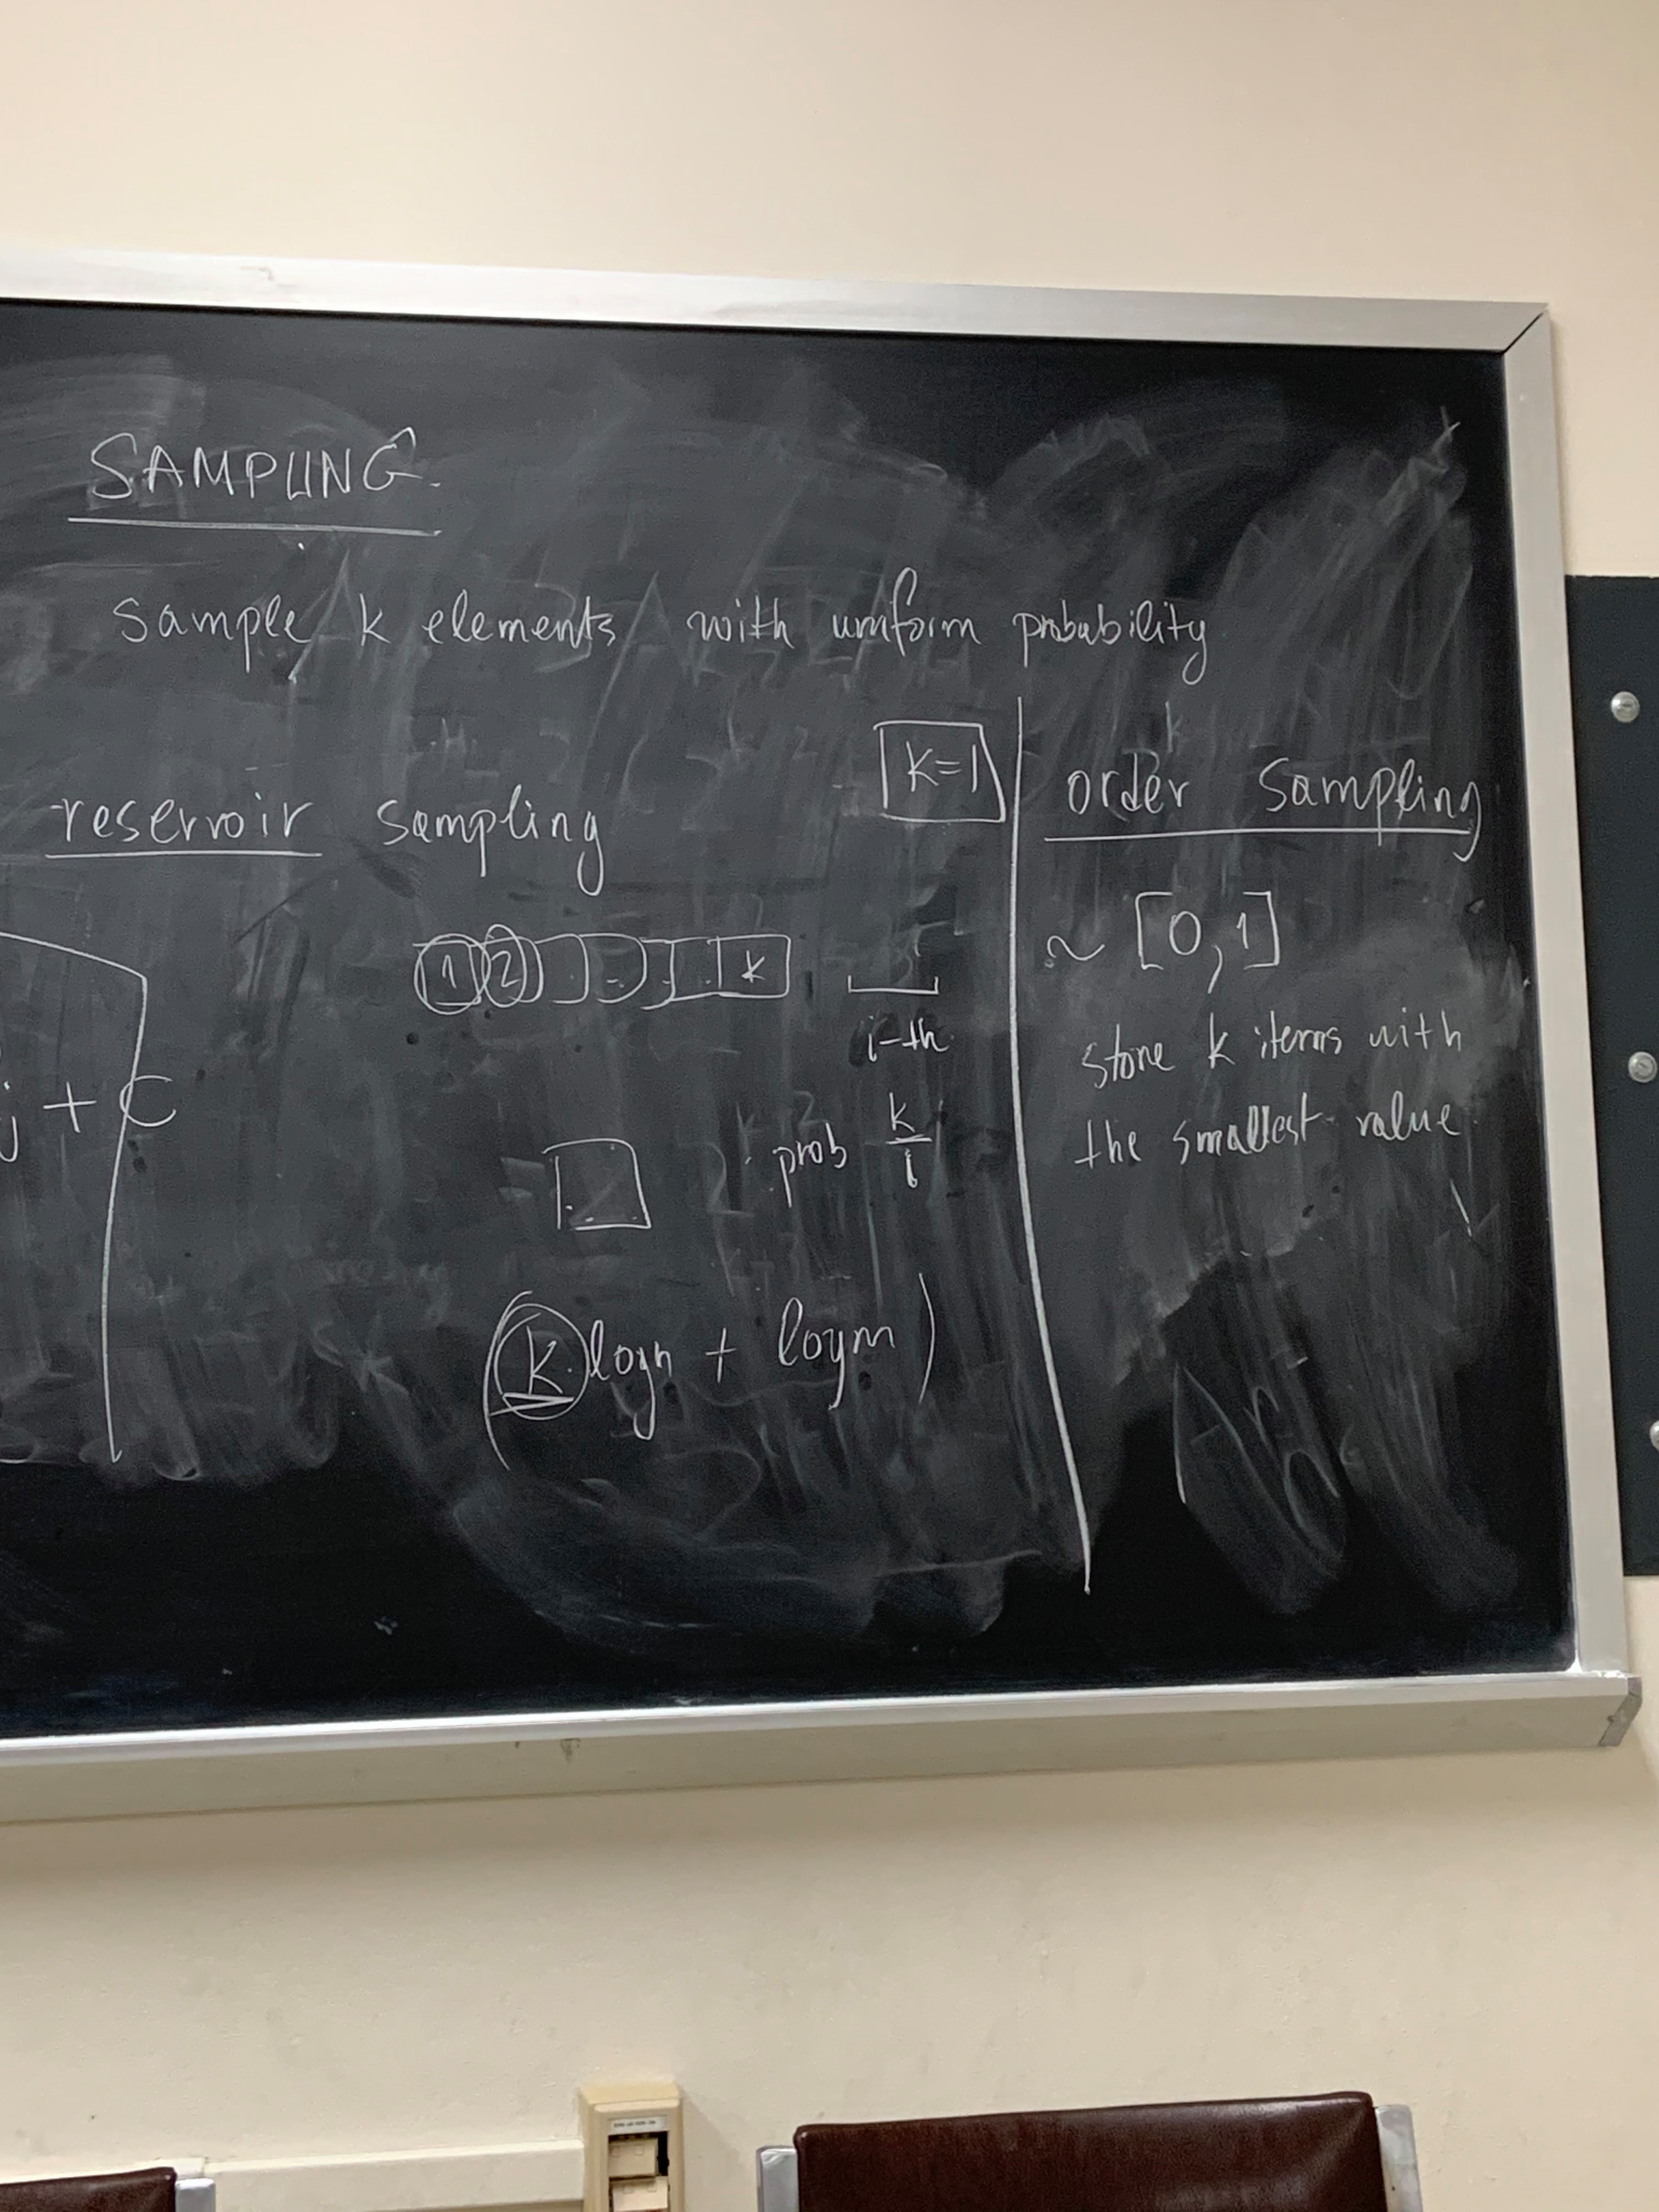 SAMPLING
sample k elements with uniform probability
reservoir sampling
k=1
1 2 . . . . k
i-th
prob k/i
(k·logn + logm)
j + C
order sampling
~ [0,1]
store k items with
the smallest value